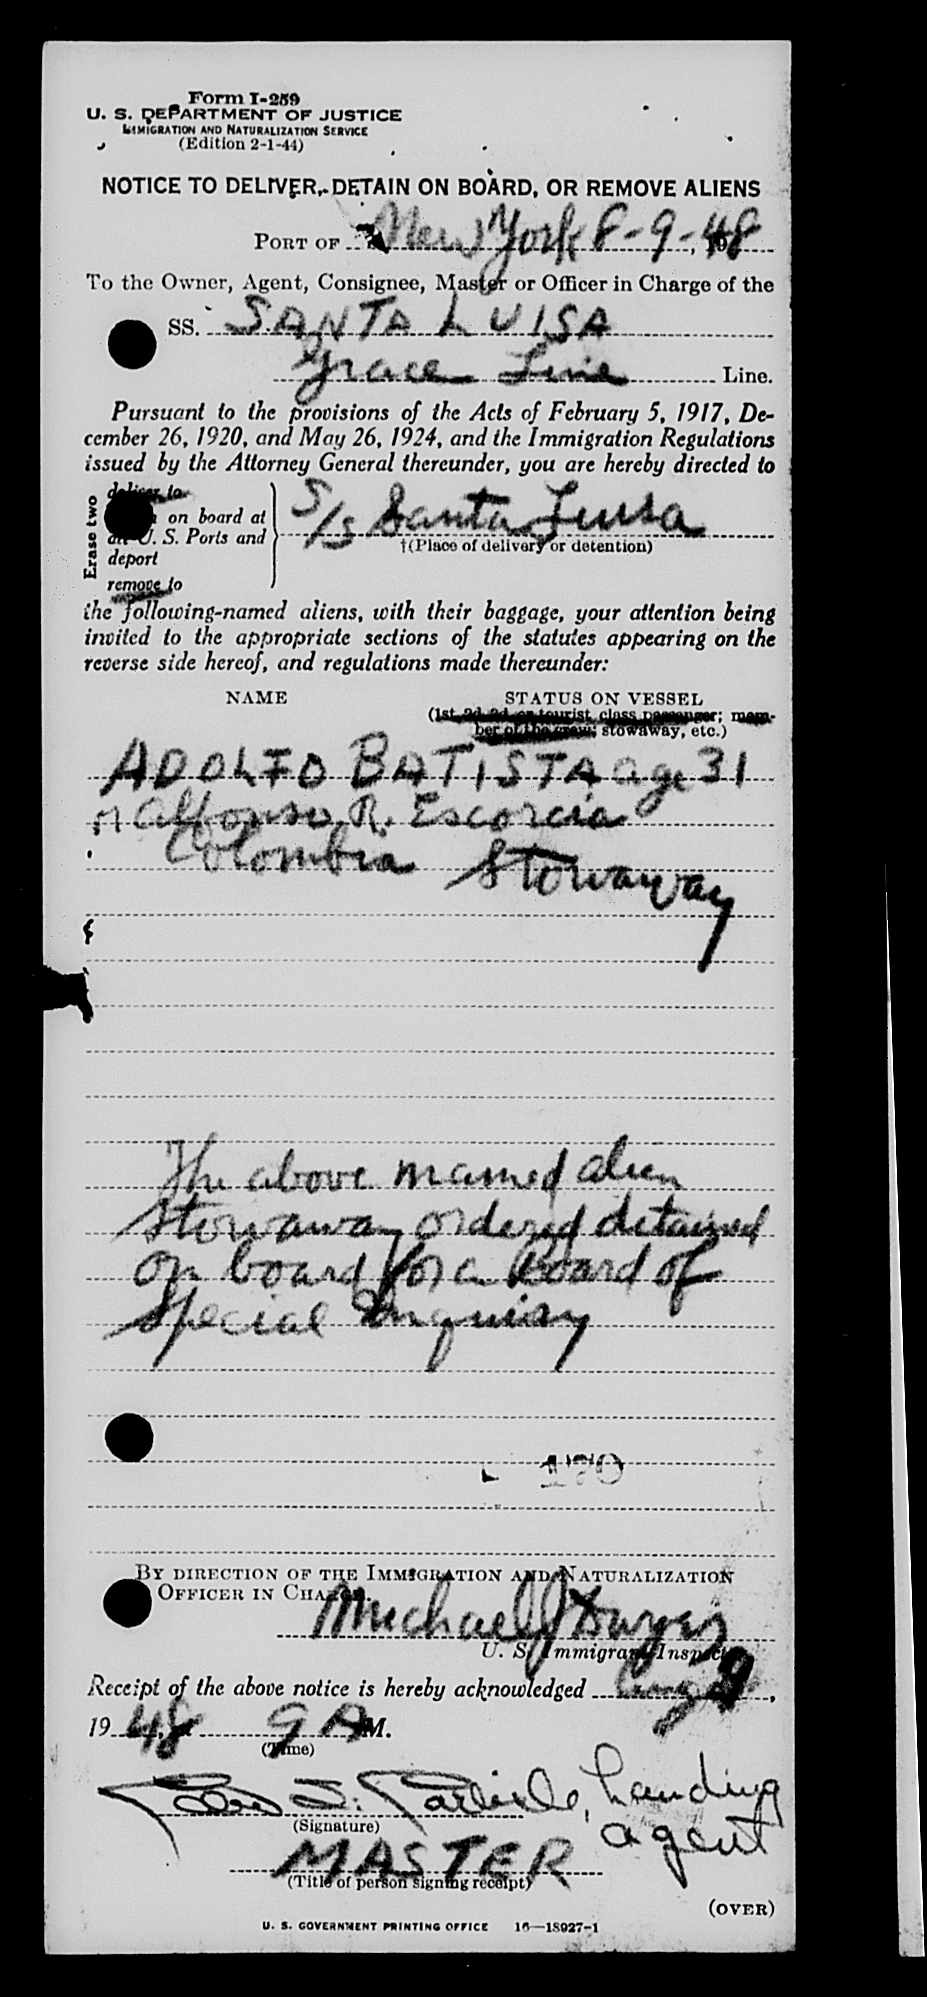 Form I-259
U. S. DEPARTMENT OF JUSTICE
IMMIGRATION AND NATURALIZATION SERVICE
(Edition 2-1-44)
NOTICE TO DELIVER, DETAIN ON BOARD, OR REMOVE ALIENS
PORT OF New York 8-9-48
To the Owner, Agent, Consignee, Master or Officer in Charge of the
SS. SANTA LUISA
Grace Line Line.
Pursuant to the provisions of the Acts of February 5, 1917, De-
cember 26, 1920, and May 26, 1924, and the Immigration Regulations
issued by the Attorney General thereunder, you are hereby directed to
Erase two
deliver to
on board at
all U. S. Ports and
deport
remove to
S/S Santa Luisa
†(Place of delivery or detention)
the following-named aliens, with their baggage, your attention being
invited to the appropriate sections of the statutes appearing on the
reverse side hereof, and regulations made thereunder:
NAME STATUS ON VESSEL
(1st, 2d, 3d, or tourist class passenger; mem-
ber of the crew; stowaway, etc.)
ADOLFO BATISTA age 31
or Alfonso R. Escorcia
Colombia Stowaway
The above named alien
Stowaway ordered detained
on board for a Board of
Special Inquiry
170
BY DIRECTION OF THE IMMIGRATION AND NATURALIZATION
OFFICER IN CHARGE.
Michael J Dwyer
U. S. Immigrant Inspector
Receipt of the above notice is hereby acknowledged Aug 9,
19 48, 9 A M.
(Time)
S. Carlisle, Landing
agent
(Signature)
MASTER
(Title of person signing receipt)
(OVER)
U. S. GOVERNMENT PRINTING OFFICE 16—18927-1